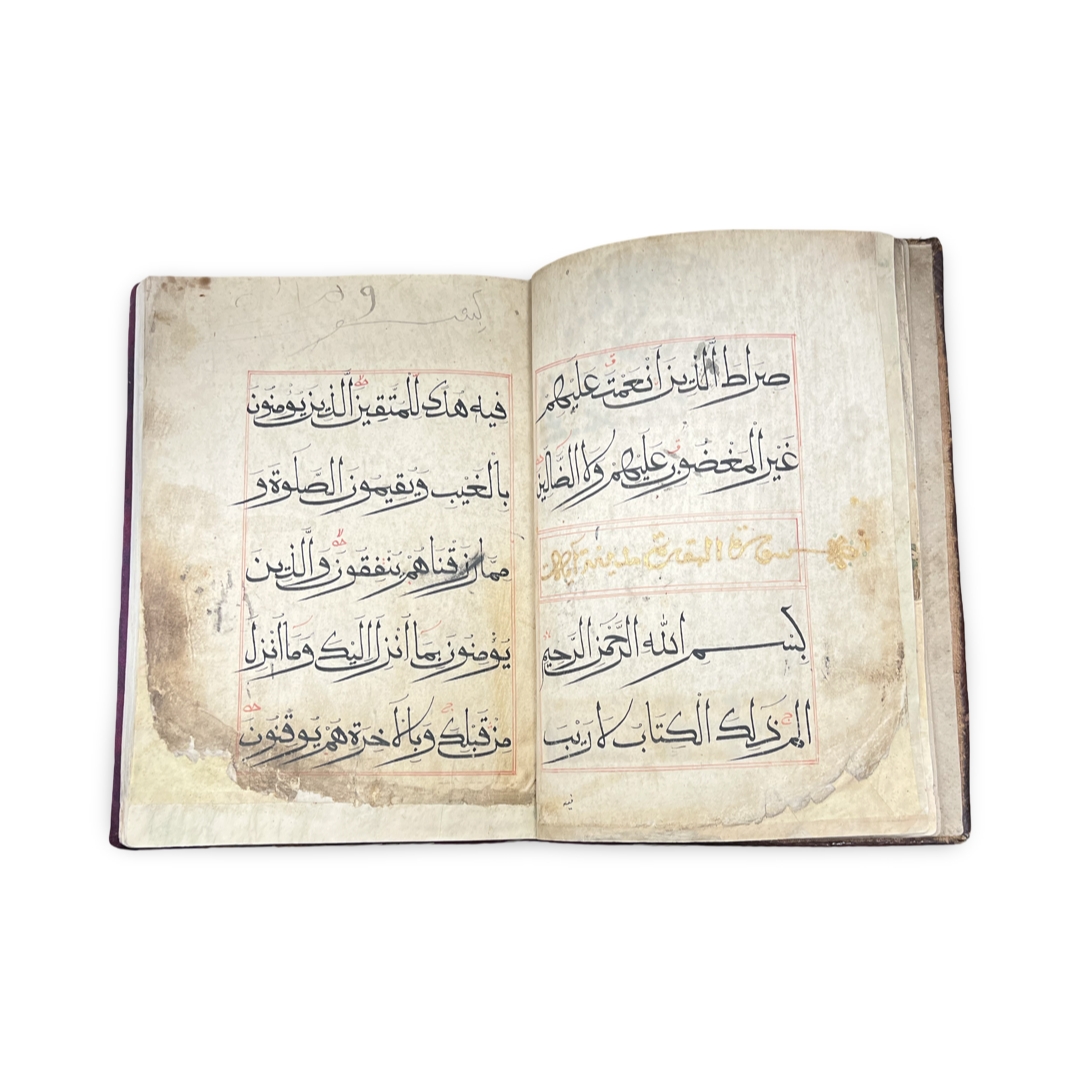 صراط الذين أنعمت عليهم
غير المغضوب عليهم ولا الضالين
سورة البقرة مدنية
بسم الله الرحمن الرحيم
الم ذلك الكتاب لا ريب
فيه
فيه هدى للمتقين الذين يؤمنون
بالغيب ويقيمون الصلوة و
مما رزقناهم ينفقون والذين
يؤمنون بما أنزل اليك وما أنزل
من قبلك وبالآخرة هم يوقنون